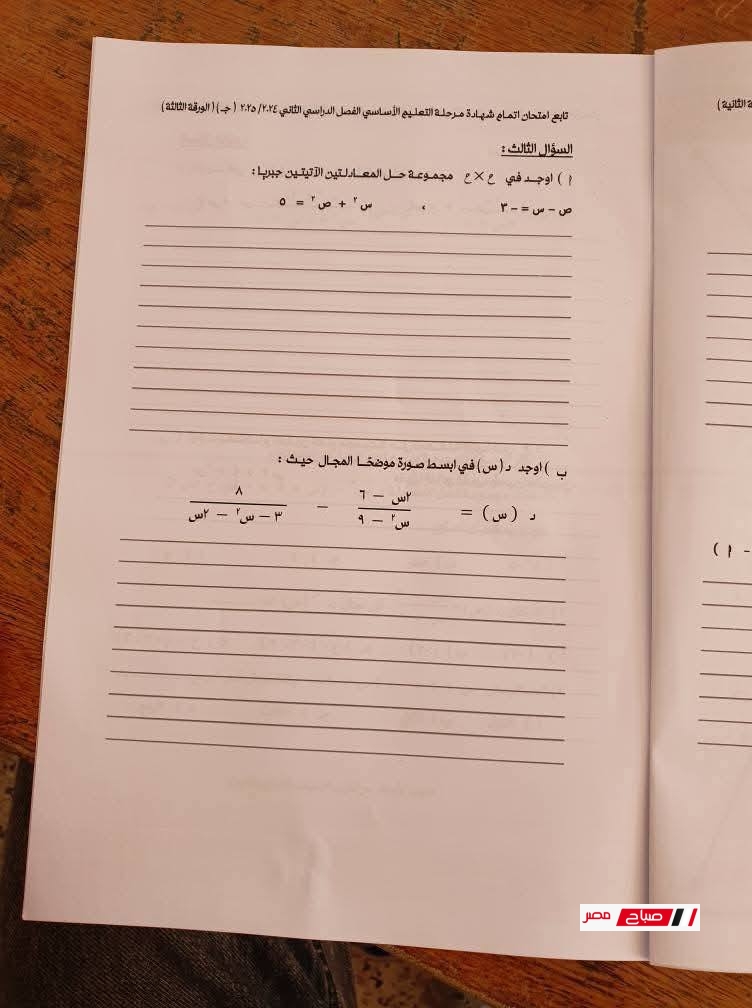 تابع امتحان اتمام شهادة مرحلة التعليم الأساسي الفصل الدراسي الثاني ٢٠٢٤/ ٢٠٢٥ ( جـ ) ( الورقة الثالثة )
السؤال الثالث :
أ ) اوجد في ح × ح مجموعة حل المعادلتين الآتيتين جبريا :
ص – س = – ٣ ، س٢ + ص٢ = ٥
ب ) اوجد د ( س ) في ابسط صورة موضحا المجال حيث :
د ( س ) = (٢س – ٦) / (س٢ – ٩) – ٨ / (٣ – س٢ – ٢س)
الثانية )
- ١ )
صباح مصر